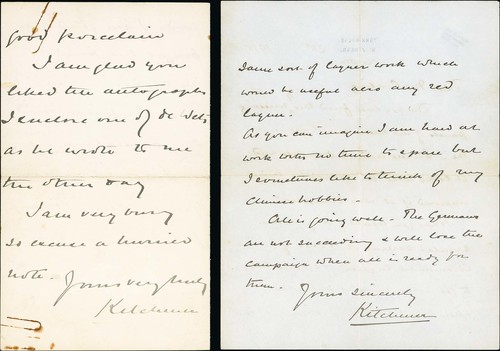 good porcelain
I am glad you
liked the autographs
I enclose one of De Wets
as he wrote to me
the other day
I am very busy
so excuse a hurried
note. Yours very truly
Kitchener
same sort of laquer work which
would be useful also any red
laquer.
As you can imagine I am hard at
work with no time to spare but
I sometimes like to think of my
Chinese hobbies.
All is going well. The Germans
are not succeeding & will lose the
campaign when all is ready for
them.
Yours sincerely
Kitchener